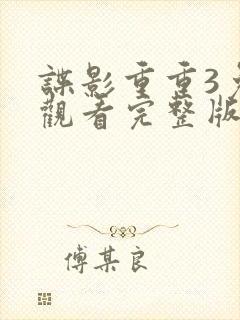 諜影重重3
觀看完整版
傅某良